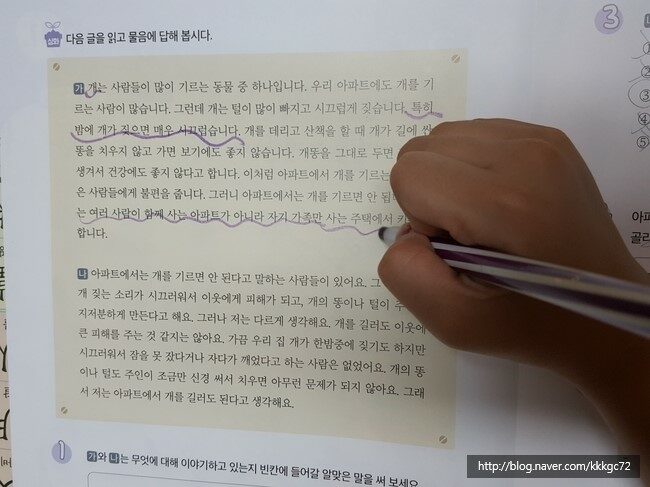 심화 다음 글을 읽고 물음에 답해 봅시다.
가 개는 사람들이 많이 기르는 동물 중 하나입니다. 우리 아파트에도 개를 기
르는 사람이 많습니다. 그런데 개는 털이 많이 빠지고 시끄럽게 짖습니다. 특히
밤에 개가 짖으면 매우 시끄럽습니다. 개를 데리고 산책을 할 때 개가 길에 싼
똥을 치우지 않고 가면 보기에도 좋지 않습니다. 개똥을 그대로 두면
생겨서 건강에도 좋지 않다고 합니다. 이처럼 아파트에서 개를 기르는
은 사람들에게 불편을 줍니다. 그러니 아파트에서는 개를 기르면 안 됩
는 여러 사람이 함께 사는 아파트가 아니라 자기 가족만 사는 주택에서
합니다.
나 아파트에서는 개를 기르면 안 된다고 말하는 사람들이 있어요. 그
개 짖는 소리가 시끄러워서 이웃에게 피해가 되고, 개의 똥이나 털이
지저분하게 만든다고 해요. 그러나 저는 다르게 생각해요. 개를 길러도 이웃에
큰 피해를 주는 것 같지는 않아요. 가끔 우리 집 개가 한밤중에 짖기도 하지만
시끄러워서 잠을 못 잤다거나 자다가 깨었다고 하는 사람은 없었어요. 개의 똥
이나 털도 주인이 조금만 신경 써서 치우면 아무런 문제가 되지 않아요. 그래
서 저는 아파트에서 개를 길러도 된다고 생각해요.
1 가와 나는 무엇에 대해 이야기하고 있는지 빈칸에 들어갈 알맞은 말을 써 보세요
3
③
④
⑤
아파
골라
http://blog.naver.com/kkkgc72